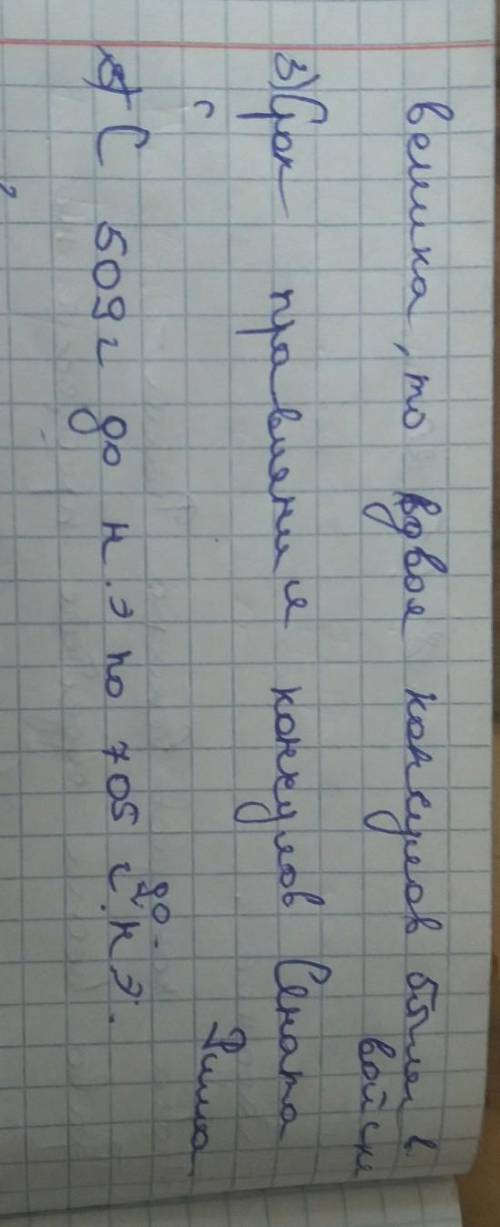 велика, то вдвоя консулов были в войске
3) Срок правления консулов Сената Рима
С 509 г до н.э по 705 г. до н.э.